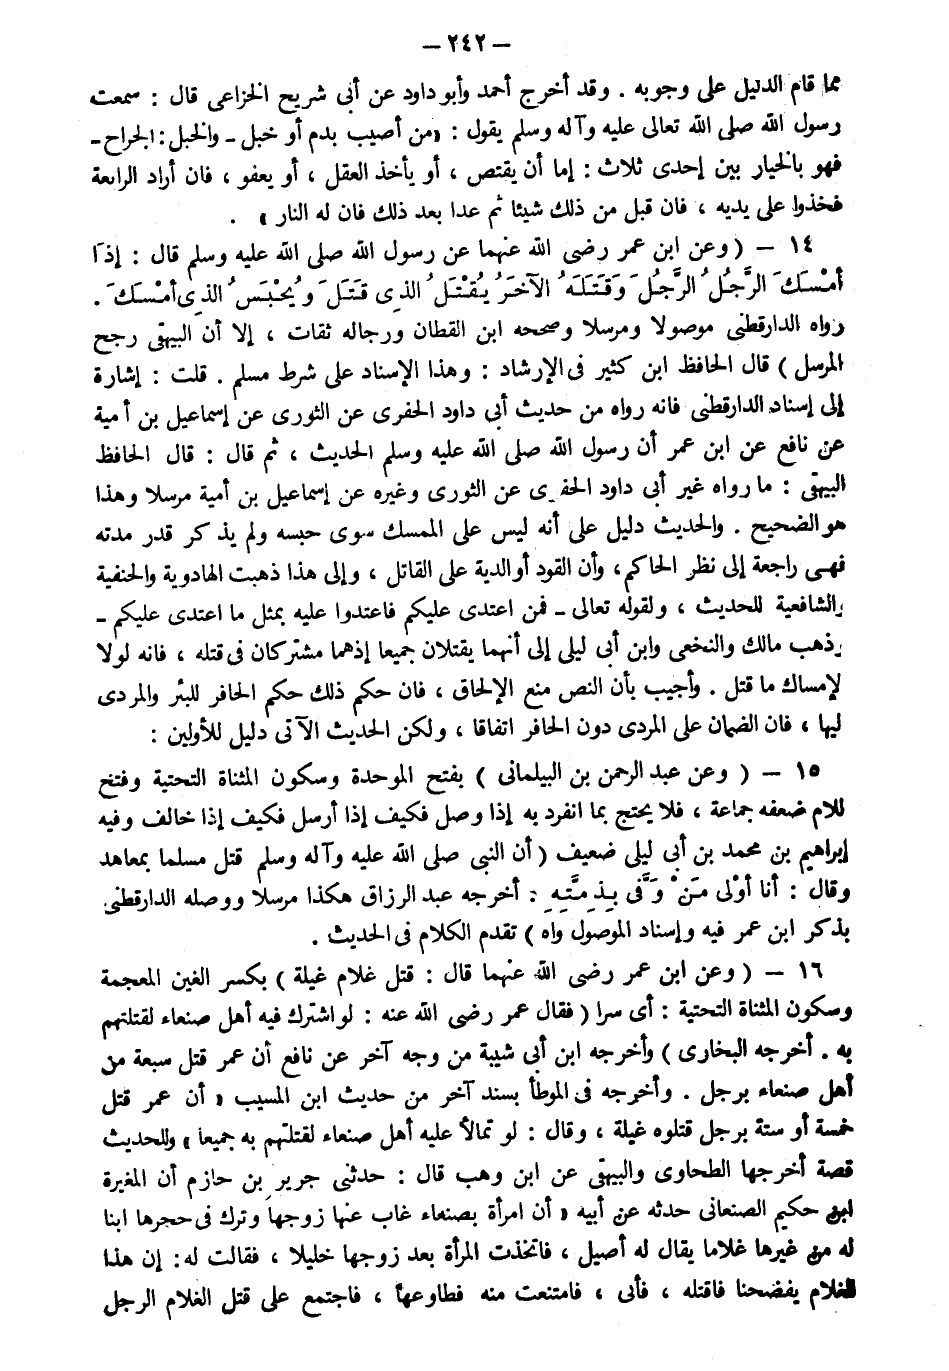 — ٢٤٢ —
مما قام الدليل على وجوبه . وقد أخرج أحمد وأبو داود عن أبى شريح الخزاعى قال : سمعت
رسول الله صلى الله تعالى عليه وآله وسلم يقول : «من أصيب بدم أو خبل ـ والخبل : الجراح ـ
فهو بالخيار بين إحدى ثلاث : إما أن يقتص ، أو يأخذ العقل ، أو يعفو ، فان أراد الرابعة
فخذوا على يديه ، فان قبل من ذلك شيئا ثم عدا بعد ذلك فان له النار » .
١٤ — ( وعن ابن عمر رضى الله عنهما عن رسول الله صلى الله عليه وسلم قال : إذَا
أمْسَكَ الرَّجُلُ الرَّجُلَ وَقَتَلَهُ الآخَرُ يُقْتَلُ الذِى قَتَلَ وَيُحْبَسُ الذِى أمْسَكَ .
رواه الدارقطنى موصولا ومرسلا وصححه ابن القطان ورجاله ثقات ، إلا أن البيهقى رجح
المرسل ) قال الحافظ ابن كثير فى الإرشاد : وهذا الإسناد على شرط مسلم . قلت : إشارة
إلى إسناد الدارقطنى فانه رواه من حديث أبى داود الحفرى عن الثورى عن إسماعيل بن أمية
عن نافع عن ابن عمر أن رسول الله صلى الله عليه وسلم الحديث ، ثم قال : قال الحافظ
البيهقى : ما رواه غير أبى داود الحفرى عن الثورى وغيره عن إسماعيل بن أمية مرسلا وهذا
هو الصحيح . والحديث دليل على أنه ليس على الممسك سوى حبسه ولم يذكر قدر مدته
فهى راجعة إلى نظر الحاكم ، وأن القود أو الدية على القاتل ، وإلى هذا ذهبت الهادوية والحنفية
والشافعية للحديث ، ولقوله تعالى ـ فمن اعتدى عليكم فاعتدوا عليه بمثل ما اعتدى عليكم ـ
وذهب مالك والنخعى وابن أبى ليلى إلى أنهما يقتلان جميعا إذ هما مشتركان فى قتله ، فانه لولا
لإمساك ما قتل . وأجيب بأن النص منع الإلحاق ، فان حكم ذلك حكم الحافر للبئر والمردى
ليها ، فان الضمان على المردى دون الحافر اتفاقا ، ولكن الحديث الآتى دليل للأولين :
١٥ — ( وعن عبد الرحمن بن البيلمانى ) بفتح الموحدة وسكون المثناة التحتية وفتح
للام ضعفه جماعة ، فلا يحتج بما انفرد به إذا وصل فكيف إذا أرسل فكيف إذا خالف وفيه
إبراهيم بن محمد بن أبى ليلى ضعيف ( أن النبى صلى الله عليه وآله وسلم قتل مسلما بمعاهد
وقال : أنا أوْلى مَنْ وَفَّى بِذِمَّتِهِ : أخرجه عبد الرزاق هكذا مرسلا ووصله الدارقطنى
بذكر ابن عمر فيه وإسناد الموصول واه ) تقدم الكلام فى الحديث .
١٦ — ( وعن ابن عمر رضى الله عنهما قال : قتل غلام غيلة ) بكسر الغين المعجمة
وسكون المثناة التحتية : أى سرا ( فقال عمر رضى الله عنه : لو اشترك فيه أهل صنعاء لقتلتهم
به . أخرجه البخارى ) وأخرجه ابن أبى شيبة من وجه آخر عن نافع أن عمر قتل سبعة من
أهل صنعاء برجل . وأخرجه فى الموطأ بسند آخر من حديث ابن المسيب « أن عمر قتل
خمسة أو ستة برجل قتلوه غيلة ، وقال : لو تمالأ عليه أهل صنعاء لقتلتهم به جميعا » وللحديث
قصة أخرجها الطحاوى والبيهقى عن ابن وهب قال : حدثنى جرير بن حازم أن المغيرة
ابن حكيم الصنعانى حدثه عن أبيه « أن امرأة بصنعاء غاب عنها زوجها وترك فى حجرها ابنا
له من غيرها غلاما يقال له أصيل ، فاتخذت المرأة بعد زوجها خليلا ، فقالت له : إن هذا
الغلام يفضحنا فاقتله ، فأبى ، فامتنعت منه فطاوعها ، فاجتمع على قتل الغلام الرجل